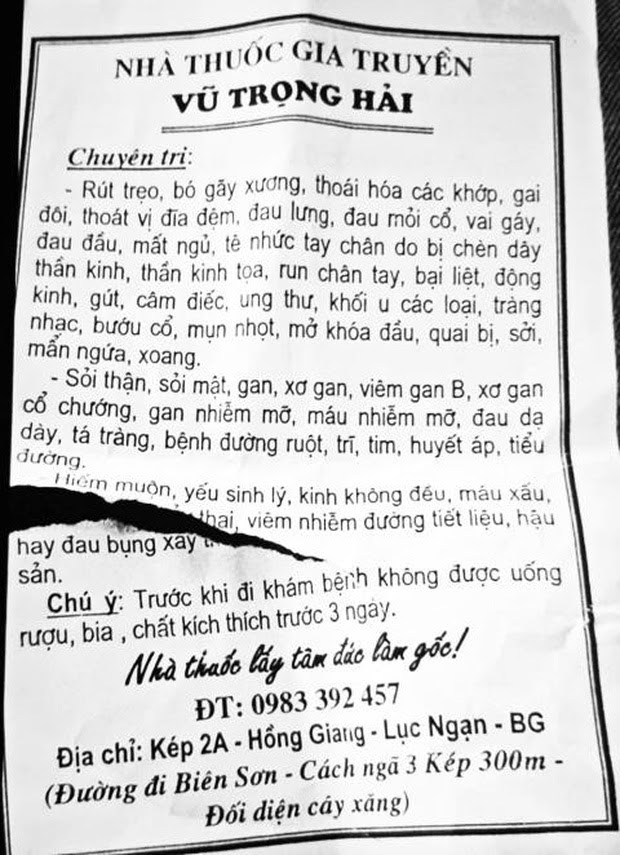 NHÀ THUỐC GIA TRUYỀN
VŨ TRỌNG HẢI
Chuyên trị:
- Rút trẹo, bó gãy xương, thoái hóa các khớp, gai
đôi, thoát vị đĩa đệm, đau lưng, đau mỏi cổ, vai gáy,
đau đầu, mất ngủ, tê nhức tay chân do bị chèn dây
thần kinh, thần kinh tọa, run chân tay, bại liệt, động
kinh, gút, câm điếc, ung thư, khối u các loại, tràng
nhạc, bướu cổ, mụn nhọt, mở khóa đầu, quai bị, sởi,
mẩn ngứa, xoang.
- Sỏi thận, sỏi mật, gan, xơ gan, viêm gan B, xơ gan
cổ chướng, gan nhiễm mỡ, máu nhiễm mỡ, đau dạ
dày, tá tràng, bệnh đường ruột, trĩ, tim, huyết áp, tiểu
đường.
- Hiếm muộn, yếu sinh lý, kinh không đều, máu xấu,
hay đau bụng thai, viêm nhiễm đường tiết liệu, hậu
sản.
Chú ý: Trước khi đi khám bệnh không được uống
rượu, bia , chất kích thích trước 3 ngày.
Nhà thuốc lấy tâm đức làm gốc!
ĐT: 0983 392 457
Địa chỉ: Kép 2A - Hồng Giang - Lục Ngạn - BG
(Đường đi Biên Sơn - Cách ngã 3 Kép 300m -
Đối diện cây xăng)